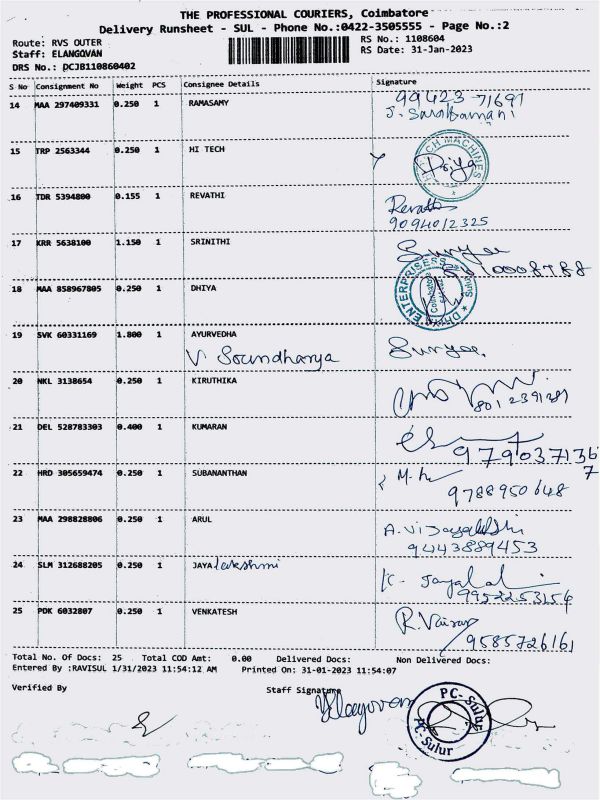 THE PROFESSIONAL COURIERS, Coimbatore
Delivery Runsheet - SUL - Phone No.:0422-3505555 - Page No.:2
Route: RVS OUTER
RS No.: 1108604
Staff: ELANGOVAN
RS Date: 31-Jan-2023
DRS No.: DCJB110860402
S No Consignment No Weight PCS Consignee Details Signature
14 MAA 297409331 0.250 1 RAMASAMY 99423-71691
15 TRP 2563344 0.250 1 HI TECH Priya
16 TDR 5394800 0.155 1 REVATHI Revathi
9094012325
17 KRR 5638100 1.150 1 SRINITHI
18 MAA 858967805 0.250 1 DHIYA
19 SVK 60331169 1.800 1 AYURVEDHA
V. Soundharya
20 NKL 3138654 0.250 1 KIRUTHIKA
21 DEL 528783303 0.400 1 KUMARAN
9790371367
22 HRD 305659474 0.250 1 SUBANANTHAN
9788950648
23 MAA 298828806 0.250 1 ARUL
9443889453
24 SLM 312688205 0.250 1 JAYA lakshmi
9952253154
25 PDK 6032807 0.250 1 VENKATESH
9585726161
Total No. Of Docs: 25 Total COD Amt: 0.00 Delivered Docs: Non Delivered Docs:
Entered By :RAVISUL 1/31/2023 11:54:12 AM Printed On: 31-01-2023 11:54:07
Verified By Staff Signature
PC-Sulur
PC-Sulur